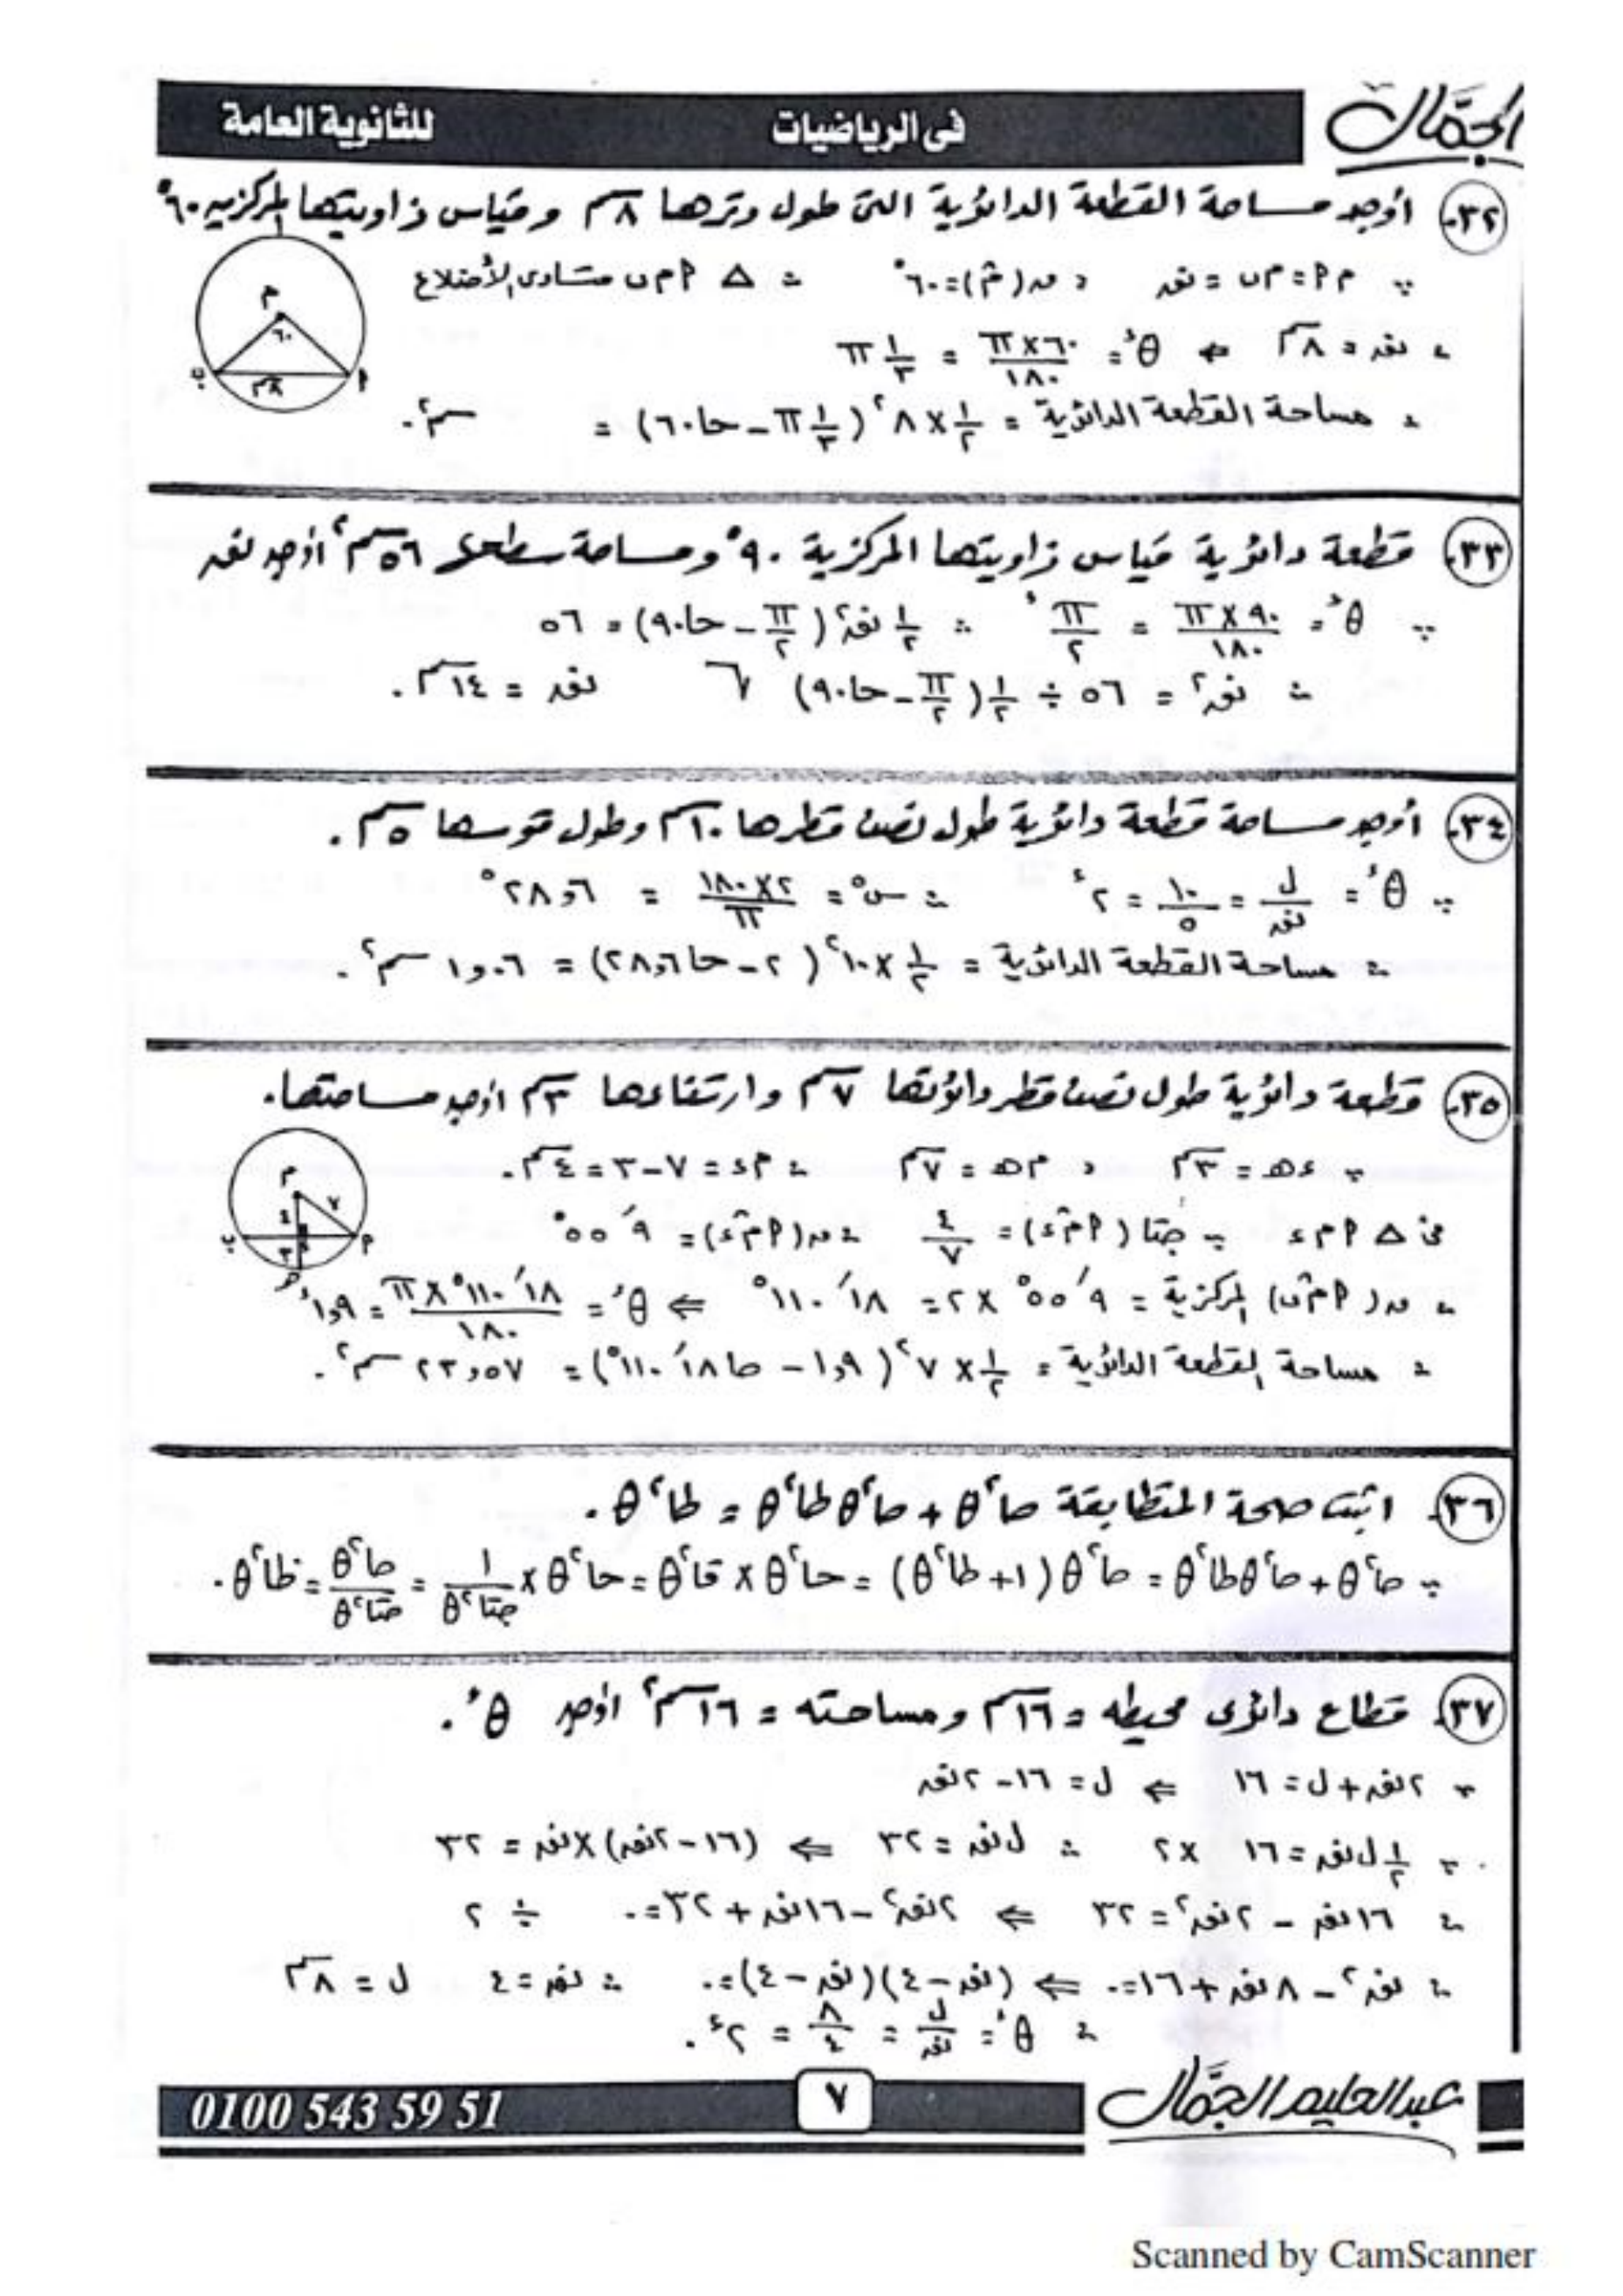 الجمّال
فى الرياضيات
للثانوية العامة
٣٢- أوجد مساحة القطعة الدائرية التى طول وترها ٨سم وقياس زاويتها المركزيه ٦٠°
∵ م٢ = م ب = نق ، ق(م̂) = ٦٠° ∴ △ ٢ م ب متساوى الأضلاع
∴ نق = ٨سم ⇐ θ^ء = ٦٠×π/١٨٠ = ١/٣ π
∴ مساحة القطعة الدائرية = ١/٢ × ٨² (١/٣ π – حا٦٠) = سم².
م
٦٠
ب
٨سم
٢
٣٣- قطعة دائرية قياس زاويتها المركزية ٩٠° ومساحة سطحها ٥٦سم² أوجد نق
∵ θ^ء = ٩٠×π/١٨٠ = π/٢ ^ء ∴ ١/٢ نق² (π/٢ – حا٩٠) = ٥٦
∴ نق² = ٥٦ ÷ ١/٢ (π/٢ – حا٩٠) نق = ١٤سم.
٣٤- أوجد مساحة قطعة دائرية طول نصف قطرها ١٠سم وطول قوسها ٥سم.
∵ θ^ء = ل/نق = ١٠/٥ = ٢^ء ∴ س° = ٢×١٨٠/π = ٢٨٫٦°
∴ مساحة القطعة الدائرية = ١/٢ × ١٠² (٢ – حا٢٨٫٦) = ١٫٠٦ سم².
٣٥- قطعة دائرية طول نصف قطر دائرتها ٧سم وارتفاعها ٣سم أوجد مساحتها.
∵ ءهـ = ٣سم ، م هـ = ٧سم ∴ م ء = ٧–٣ = ٤سم.
فى △ ٢ م ء ∵ جتا (٢ م̂ ء) = ٤/٧ ∴ ق(٢ م̂ ء) = ٩ َ ٥٥°
∴ ق(٢ م̂ ب) المركزية = ٩ َ ٥٥° × ٢ = ١٨ َ ١١٠° ⇐ θ^ء = ١٨ َ ١١٠° × π/١٨٠ = ١٫٩^ء
∴ مساحة القطعة الدائرية = ١/٢ × ٧² (١٫٩ – حا ١٨ َ ١١٠°) = ٢٣٫٥٧ سم².
م
٧
٤
ب
٣
٢
٣٦- اثبت صحة المتطابقة حا²θ + حا²θ طا²θ = طا²θ.
∵ حا²θ + حا²θ طا²θ = حا²θ (١+ طا²θ) = حا²θ × قا²θ = حا²θ × ١/جتا²θ = حا²θ/جتا²θ = طا²θ.
٣٧- قطاع دائرى محيطه = ١٦سم ومساحته = ١٦سم² أوجد θ^ء.
∵ ٢نق + ل = ١٦ ⇐ ل = ١٦ – ٢نق
∵ ١/٢ ل نق = ١٦ ×٢ ∴ ل نق = ٣٢ ⇐ (١٦ – ٢نق) × نق = ٣٢
∴ ١٦نق – ٢نق² = ٣٢ ⇐ ٢نق² – ١٦نق + ٣٢ = ٠ ÷ ٢
∴ نق² – ٨ نق + ١٦ = ٠ ⇐ (نق – ٤)(نق – ٤) = ٠ ∴ نق = ٤ ل = ٨سم
∴ θ^ء = ل/نق = ٨/٤ = ٢^ء.
عبدالحليم الجمّال
٧
0100 543 59 51
Scanned by CamScanner